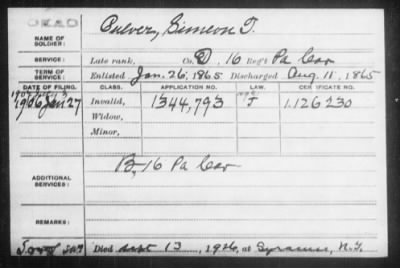 DEAD
NAME OF SOLDIER: Culver, Simeon T.
SERVICE: Late rank, Co. D, 16 Reg't Pa Cav
TERM OF SERVICE: Enlisted Jan. 26, 1865 Discharged Aug. 11, 1865
DATE OF FILING. CLASS. APPLICATION NO. LAW. CERTIFICATE NO.
1906 Jan 27 Invalid, 1344,793 J 1.126230
Widow,
Minor,
ADDITIONAL SERVICES: B, 16 Pa Cav
REMARKS:
Died Sept 13, 1926, at Syracuse, N.Y.